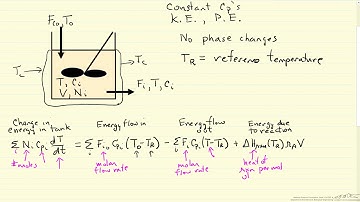 Constant Cp's
K.E., P.E.
No phase changes
TR = reference temperature
Fio, To
Tc
Tc
T, Ci
V, Ni
Fi, T, Ci
Change in energy in tank
Energy flow in
Energy flow out
Energy due to reaction
Σ Ni Cpi dT/dt = Σ Fio Cpi (To-TR) - Σ Fi Cpi (T-TR) + ΔHrxn(TR) rA V
# moles
molar flow rate
molar flow rate
heat of rxn per mol